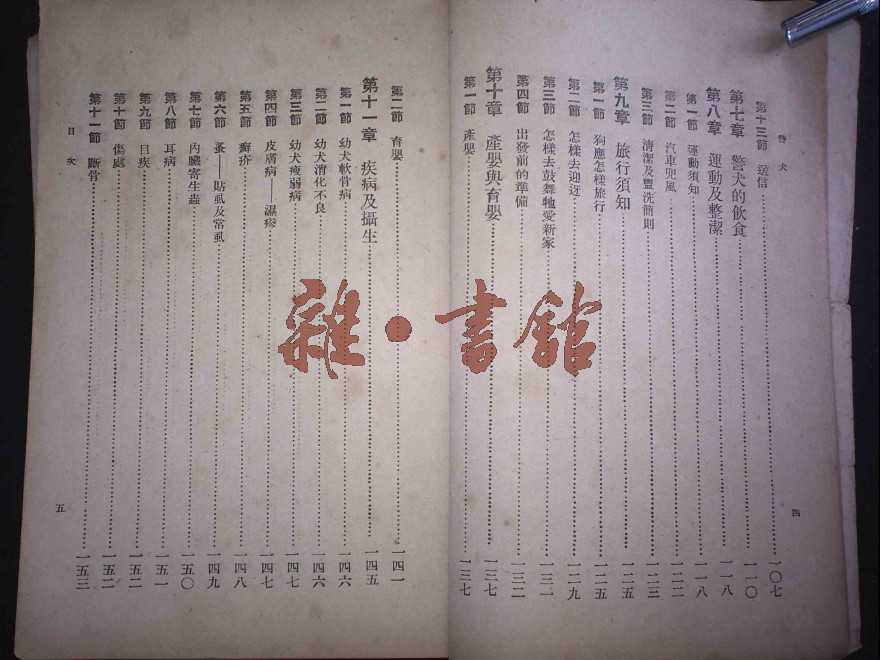 警犬
第十三節 送信 一〇七
第七章 警犬的飲食 一一〇
第八章 運動及整潔 一一八
第一節 運動須知 一一八
第二節 汽車兜風 一二二
第三節 清潔及盥洗簡則 一二三
第九章 旅行須知 一二五
第一節 狗應怎樣旅行 一二五
第二節 怎樣去迎迓 一二九
第三節 怎樣去鼓舞牠愛新家 一三一
第四節 出發前的準備 一三二
第十章 產嬰與育嬰 一三七
第一節 產嬰 一三七
四
第二節 育嬰 一四一
第十一章 疾病及攝生 一四五
第一節 幼犬軟骨病 一四六
第二節 幼犬消化不良 一四六
第三節 幼犬瘦弱病 一四七
第四節 皮膚病——濕疹 一四七
第五節 癬疥 一四八
第六節 蚤——貼虱及常虱 一四九
第七節 內臟寄生蟲 一五〇
第八節 耳病 一五一
第九節 目疾 一五二
第十節 傷處 一五二
第十一節 斷骨 一五三
目次
五
雜·書館